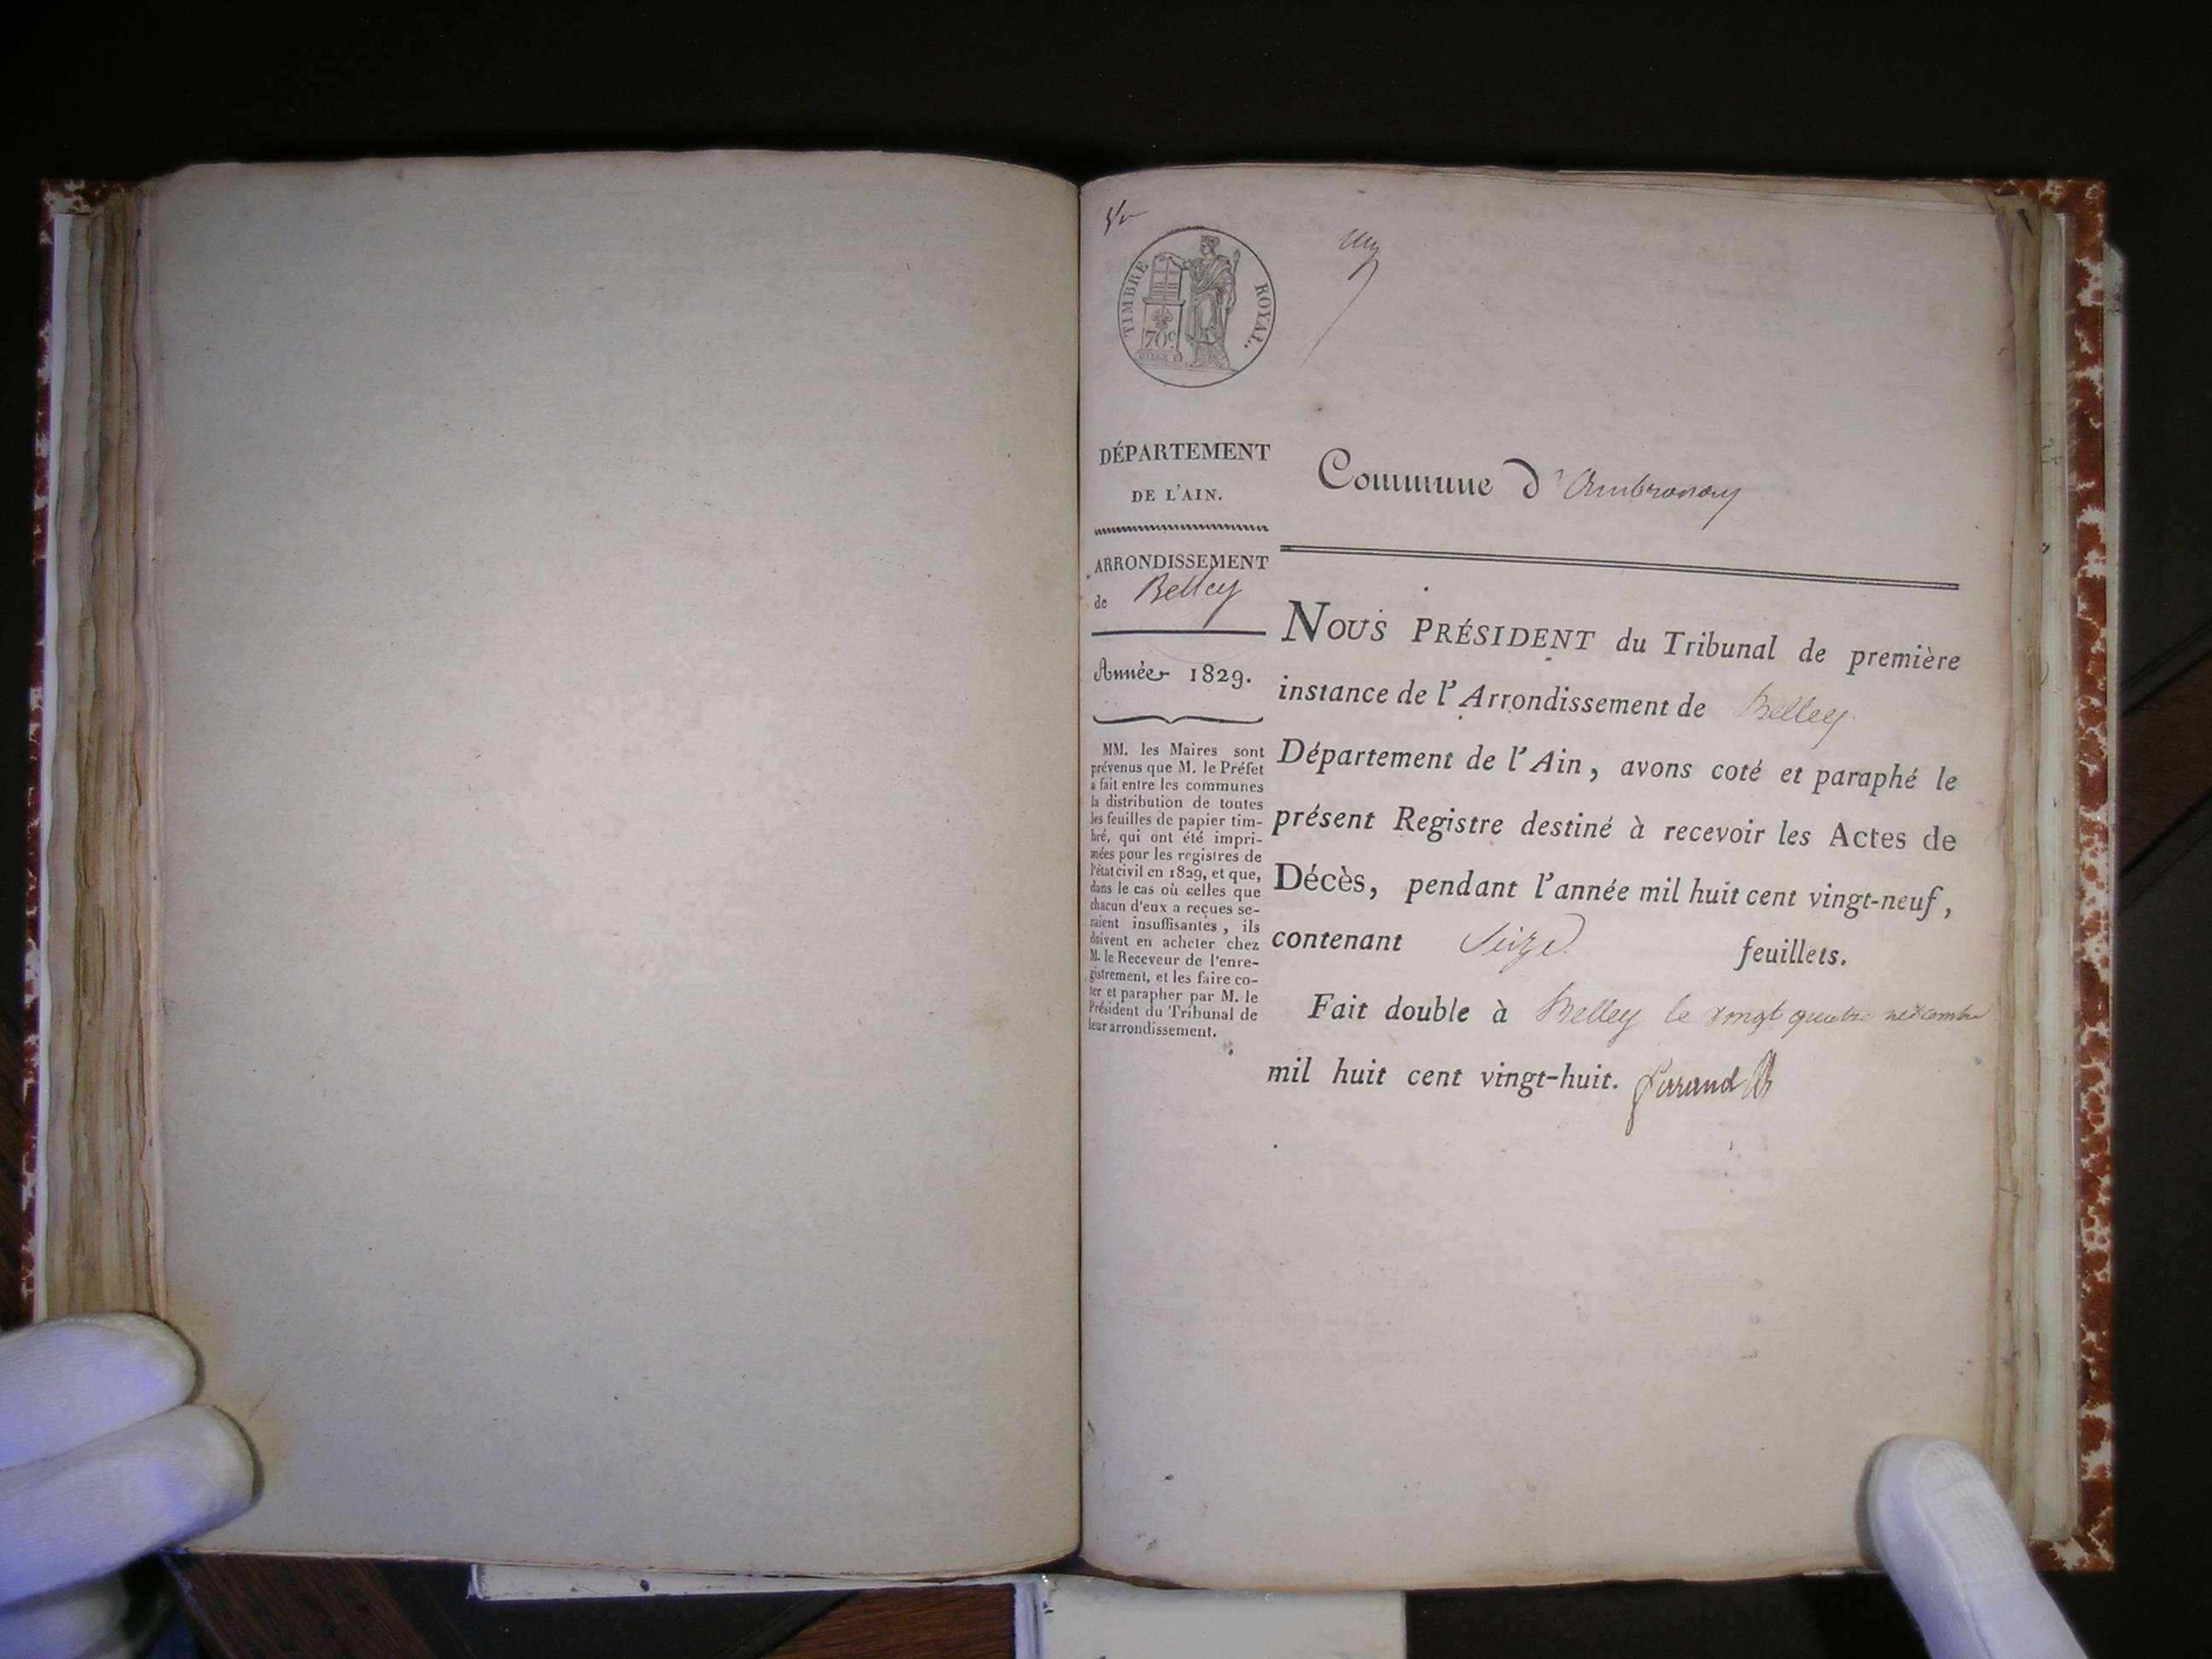 un
TIMBRE ROYAL.
70c
DÉPARTEMENT
DE L'AIN.
ARRONDISSEMENT
de Belley
Année 1829.
MM. les Maires sont
prévenus que M. le Préfet
a fait entre les communes
la distribution de toutes
les feuilles de papier tim-
bré, qui ont été impri-
mées pour les registres de
l'état civil en 1829, et que,
dans le cas où celles que
chacun d'eux a reçues se-
raient insuffisantes, ils
doivent en acheter chez
M. le Receveur de l'enre-
gistrement, et les faire co-
ter et parapher par M. le
Président du Tribunal de
leur arrondissement.
Commune d'Ambronay
NOUS PRÉSIDENT du Tribunal de première
instance de l'Arrondissement de Belley
Département de l'Ain, avons coté et paraphé le
présent Registre destiné à recevoir les Actes de
Décès, pendant l'année mil huit cent vingt-neuf,
contenant Seize feuillets.
Fait double à Belley le vingt quatre
mil huit cent vingt-huit.